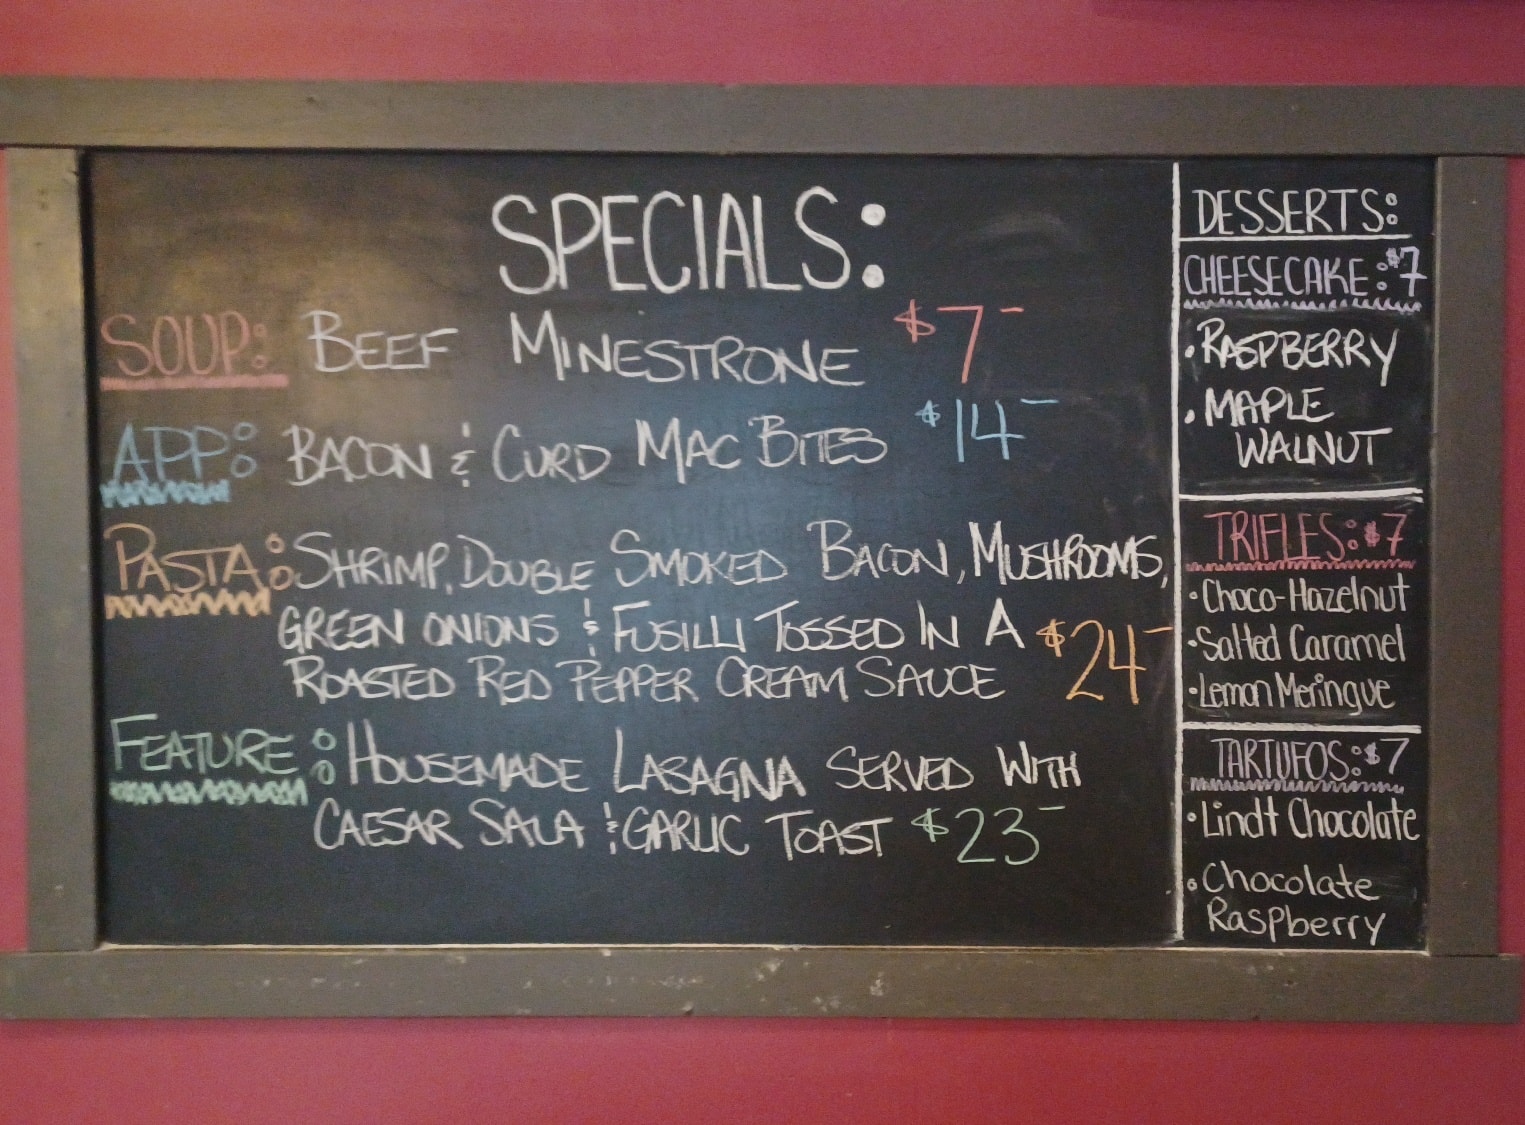 SPECIALS:
SOUP: BEEF MINESTRONE $7-
APP: BACON & CURD MAC BITES $14-
PASTA: SHRIMP, DOUBLE SMOKED BACON, MUSHROOMS,
GREEN ONIONS & FUSILLI TOSSED IN A
ROASTED RED PEPPER CREAM SAUCE $24-
FEATURE: HOUSEMADE LASAGNA SERVED WITH
CAESAR SALA & GARLIC TOAST $23-
DESSERTS:
CHEESECAKE: $7
• RASPBERRY
• MAPLE
WALNUT
TRIFLES: $7
• Choco-Hazelnut
• Salted Caramel
• Lemon Meringue
TARTUFOS: $7
• Lindt Chocolate
• Chocolate
Raspberry